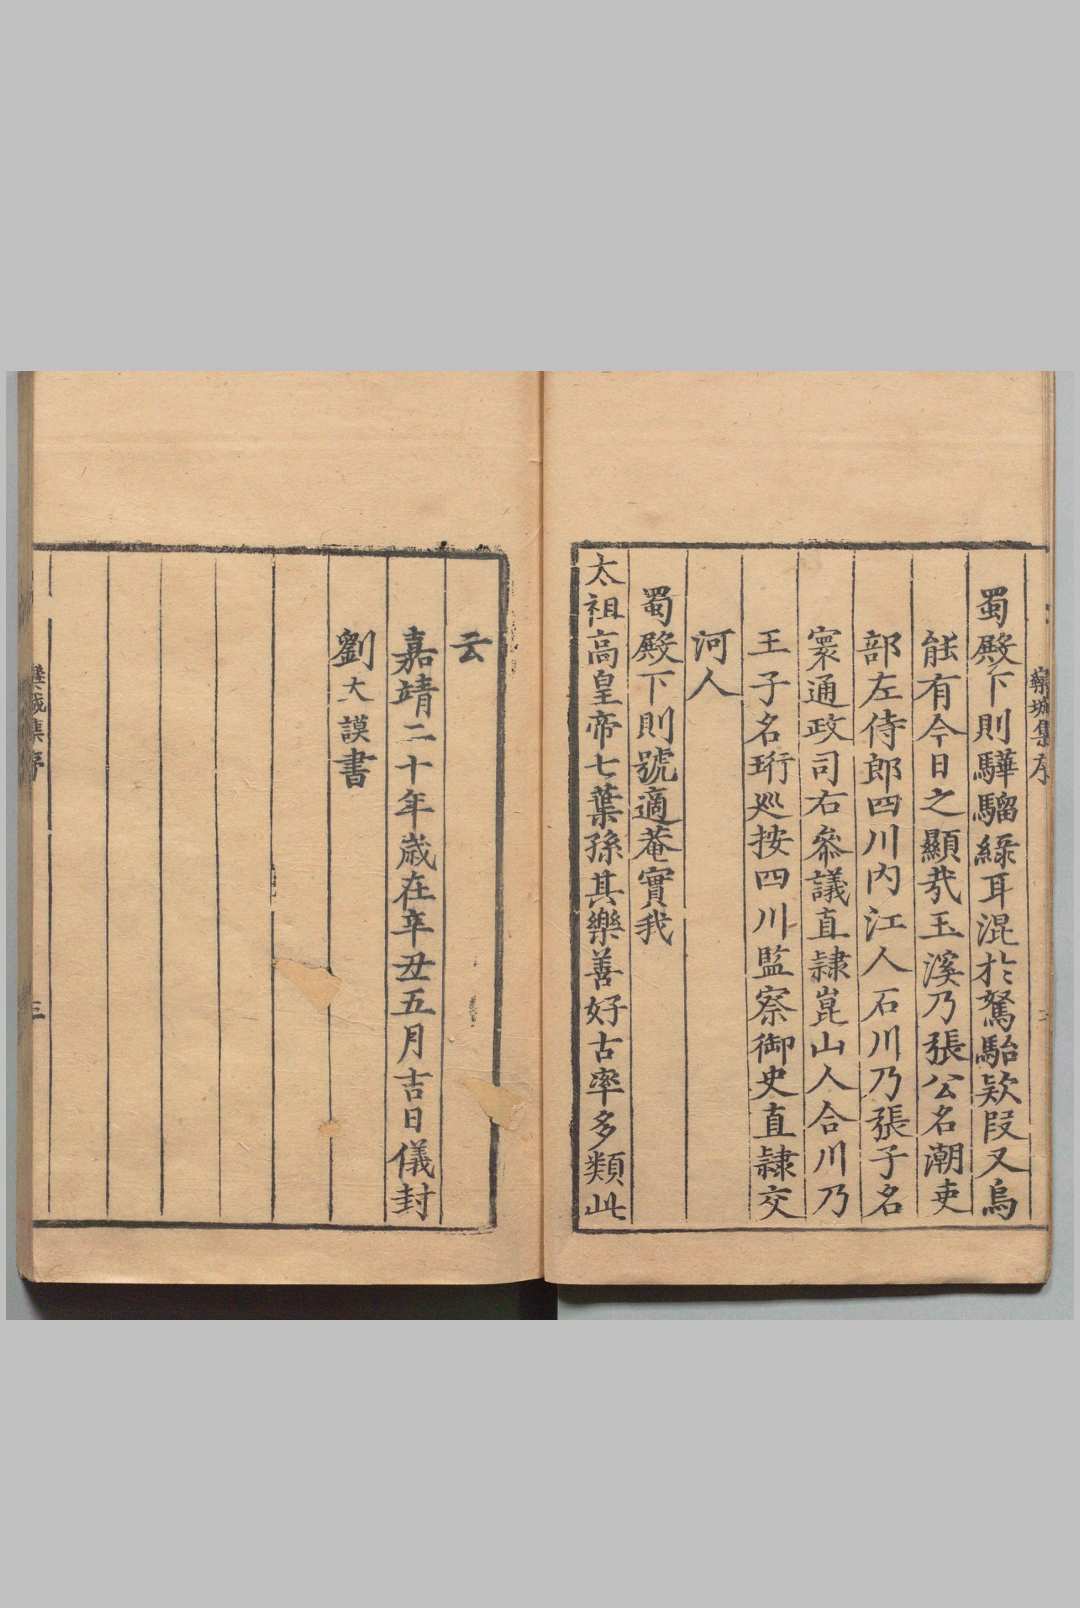 欒城集序
蜀殿下則驊騮綠耳混於駑駘欵段又烏
能有今日之顯㢤玉溪乃張公名潮吏
部左侍郎四川内江人石川乃張子名
寰通政司右叅議直隷崑山人合川乃
王子名珩巡按四川監察御史直隷交
河人
蜀殿下則號適菴實我
太祖高皇帝七葉孫其樂善好古率多類此
云
嘉靖二十年歲在辛丑五月吉日儀封
劉大謨書
欒城集序
三